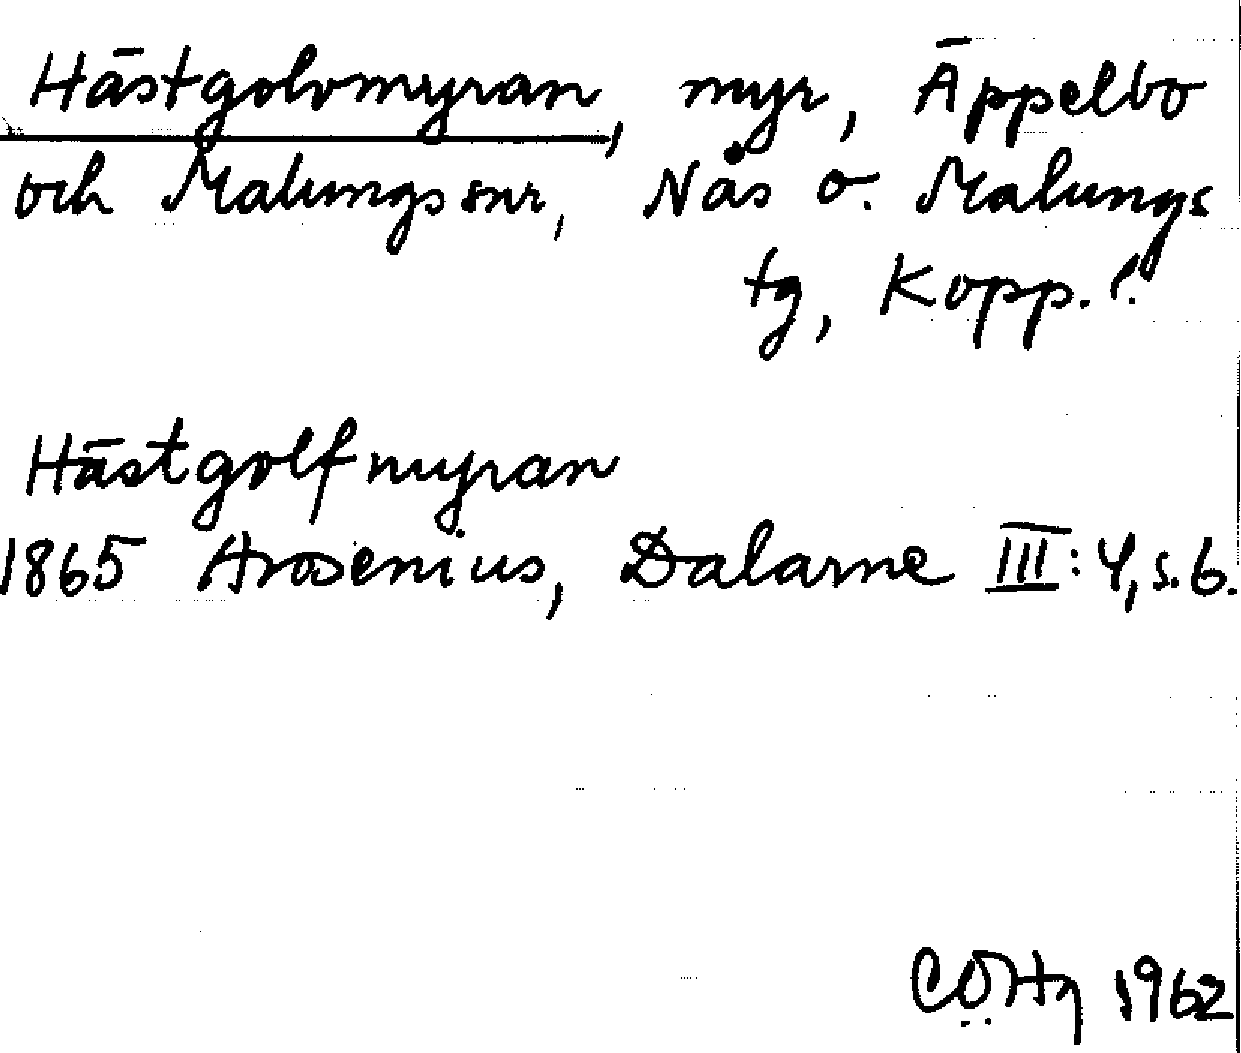 Hästgolvmyran, myr, Äppelbo
och Malungs snr, Nås o. Malungs
tg, Kopp. l.
Hästgolfmyran
1865 Arosenius, Dalarne III: 4, s. 6.
1962